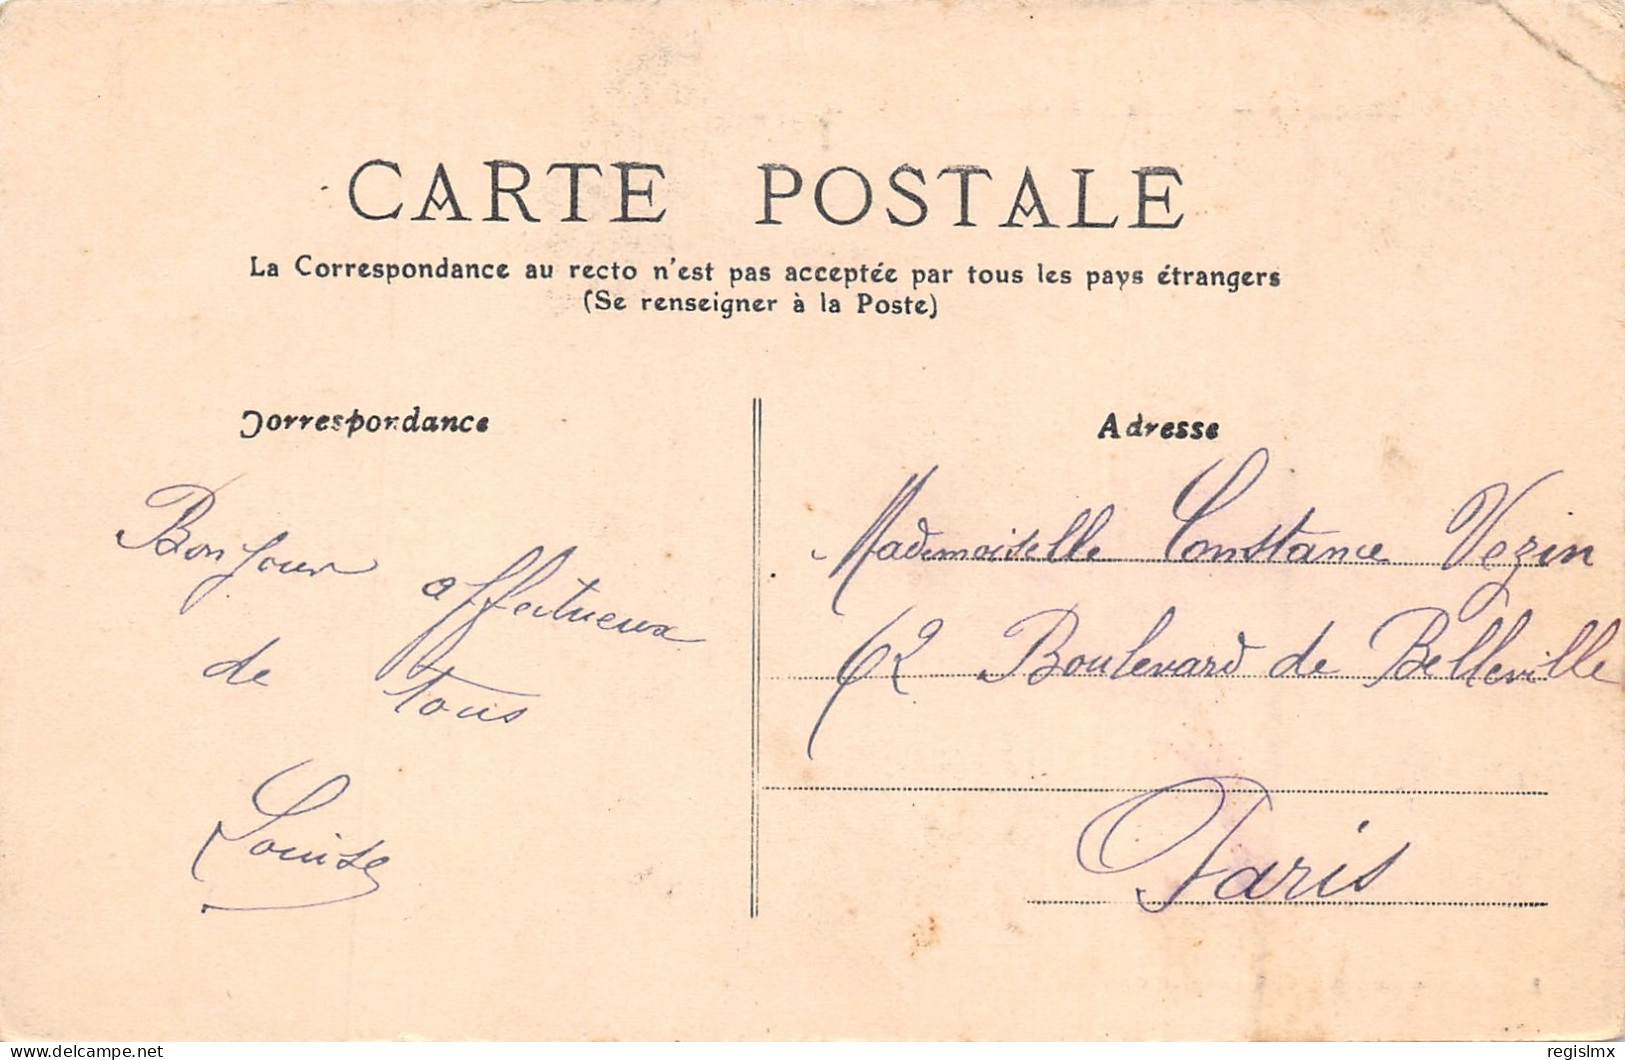 CARTE POSTALE
La Correspondance au recto n'est pas acceptée par tous les pays étrangers
(Se renseigner à la Poste)
Correspondance
Bonjour affectueux
de tous
Louise
Adresse
Mademoiselle Constance Vezin
62 Boulevard de Belleville
Paris
www.delcampe.net
regislmx